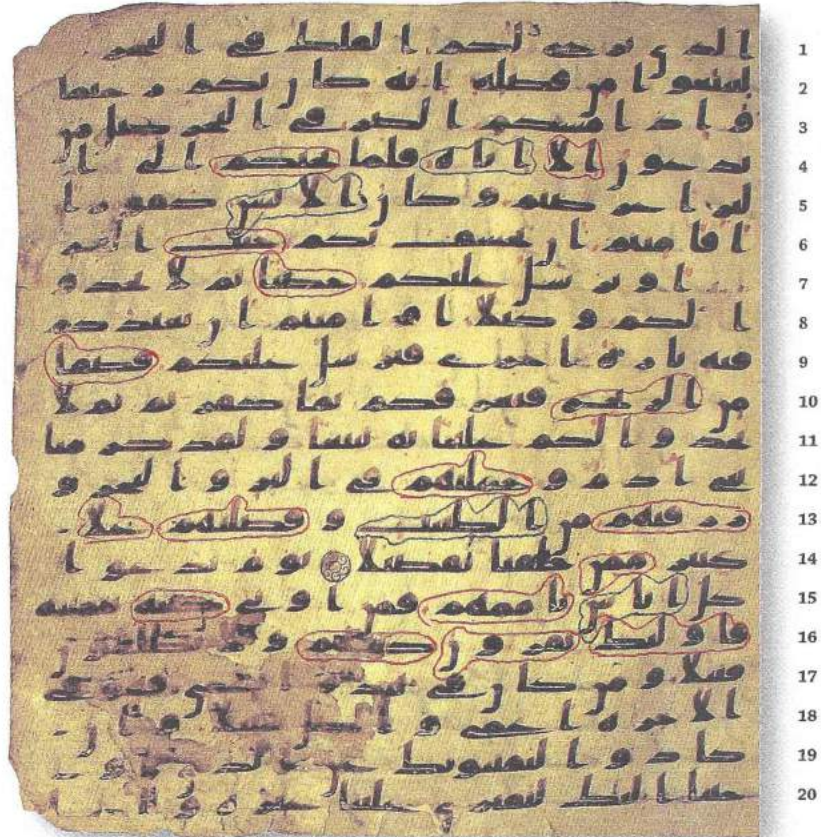 الذي يزجي لكم الفلك في البحر 1
لتبتغوا من فضله انه كان بكم رحيما 2
واذا مسكم الضر في البحر ضل من 3
تدعون الا اياه فلما نجيكم الى ا 4
لبر اعرضتم وكان الانسن كفورا 5
افامنتم ان يخسف بكم جنب البر 6
او يرسل عليكم حصبا ثم لا تجدو 7
ا لكم وكيلا ام امنتم ان يعيدكم 8
فيه تارة اخرى فيرسل عليكم قصفا 9
من الريح فيغرقكم بما كفرتم ثم لا 10
تجدوا لكم علينا به تبيعا ولقد كرمنا 11
بني ادم وحملنهم في البر والبحر و 12
رزقنهم من الطيبت وفضلنهم على 13
كثير ممن خلقنا تفضيلا يوم ندعوا 14
كل اناس باممهم فمن اوتي كتبه بيمينه 15
فاولئك يقرون كتبهم ولا يظلمون 16
فتيلا ومن كان في هذه اعمى فهو في 17
الاخرة اعمى واضل سبيلا وان 18
كادوا ليفتنونك عن الذي 19
اليك لتفتري علينا غيره 20